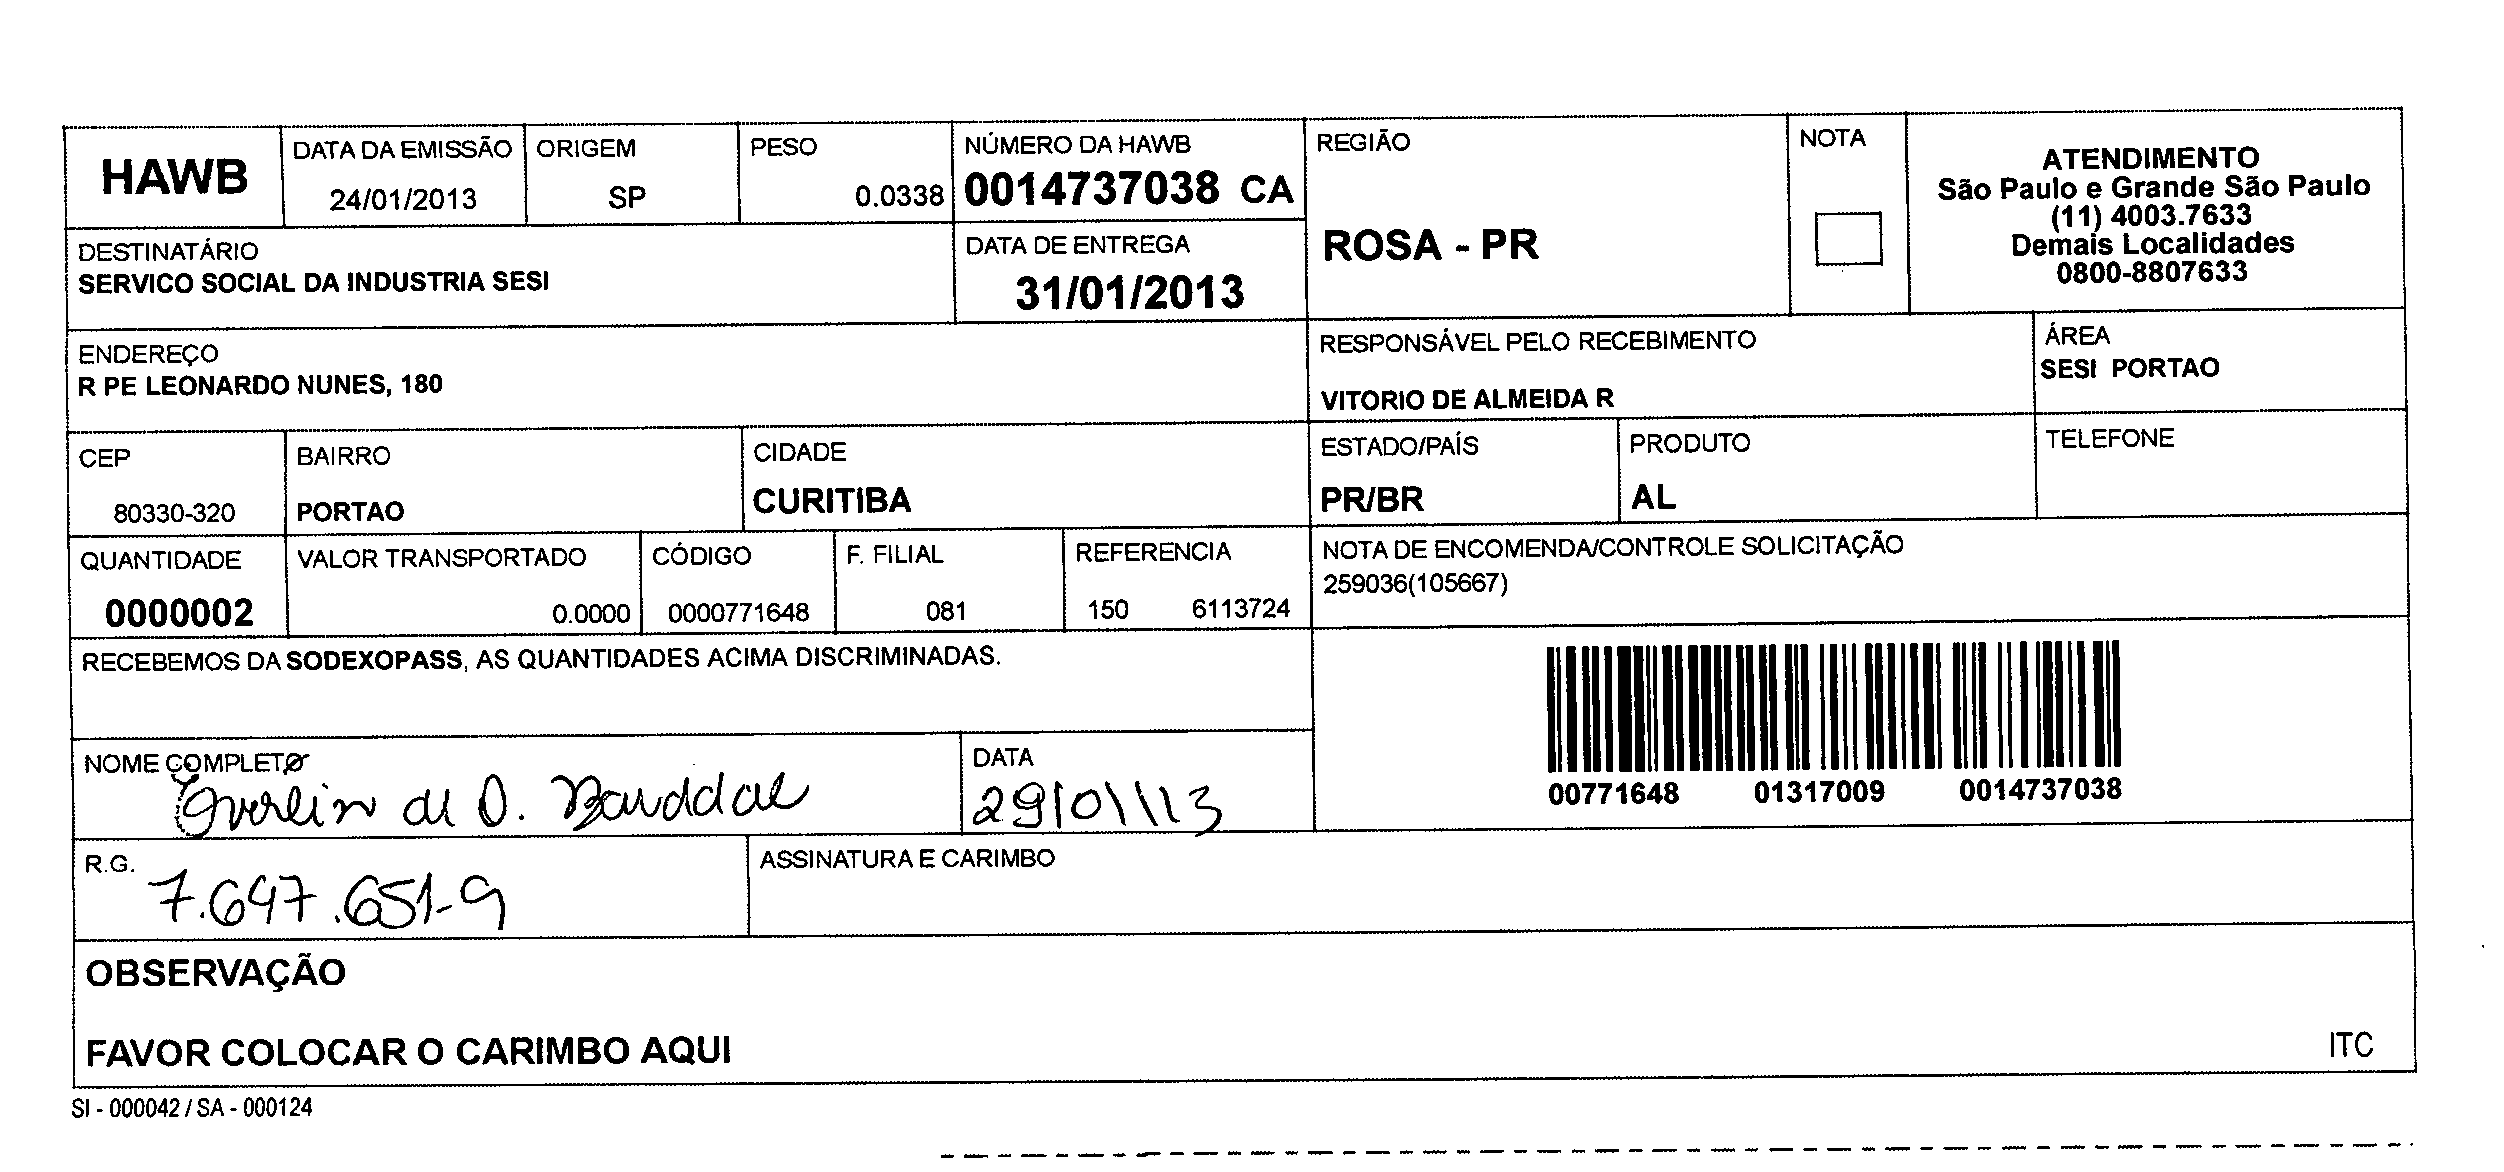 HAWB
DATA DA EMISSÃO
24/01/2013
ORIGEM
SP
PESO
0.0338
NÚMERO DA HAWB
0014737038 CA
REGIÃO
ROSA - PR
NOTA
ATENDIMENTO
São Paulo e Grande São Paulo
(11) 4003.7633
Demais Localidades
0800-8807633
DESTINATÁRIO
SERVICO SOCIAL DA INDUSTRIA SESI
DATA DE ENTREGA
31/01/2013
ENDEREÇO
R PE LEONARDO NUNES, 180
RESPONSÁVEL PELO RECEBIMENTO
VITORIO DE ALMEIDA R
ÁREA
SESI PORTAO
CEP
80330-320
BAIRRO
PORTAO
CIDADE
CURITIBA
ESTADO/PAÍS
PR/BR
PRODUTO
AL
TELEFONE
QUANTIDADE
0000002
VALOR TRANSPORTADO
0.0000
CÓDIGO
0000771648
F. FILIAL
081
REFERENCIA
150 6113724
NOTA DE ENCOMENDA/CONTROLE SOLICITAÇÃO
259036(105667)
RECEBEMOS DA SODEXOPASS, AS QUANTIDADES ACIMA DISCRIMINADAS.
00771648 01317009 0014737038
NOME COMPLETO
O.
DATA
29/01/13
R.G.
7.647.651-9
ASSINATURA E CARIMBO
OBSERVAÇÃO
FAVOR COLOCAR O CARIMBO AQUI
ITC
SI - 000042 / SA - 000124